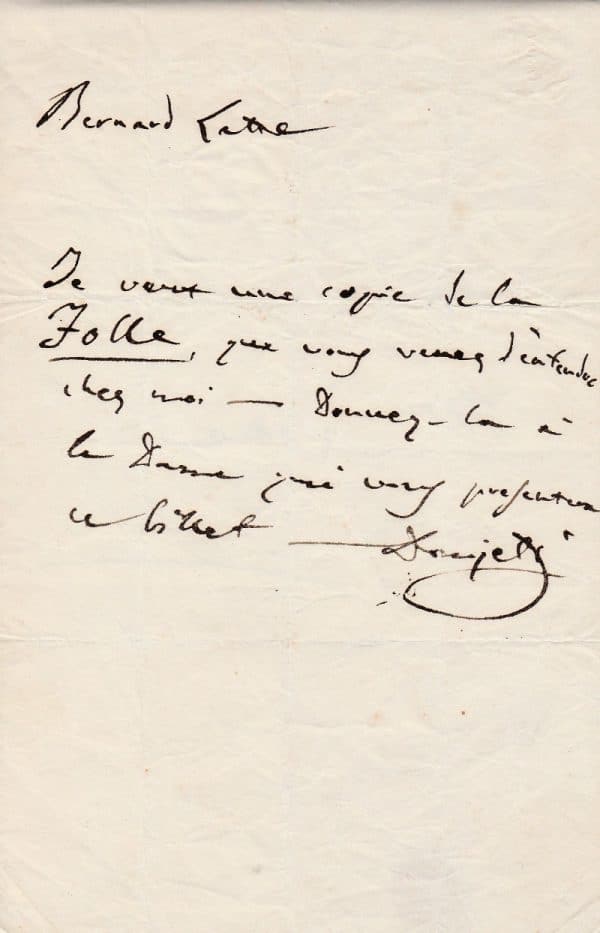 Bernard Latte
Je veux une copie de la
Folle, que vous venez d'entendre
chez moi — Donnez-la à
la Dame qui vous presentera
ce billet — Donizetti